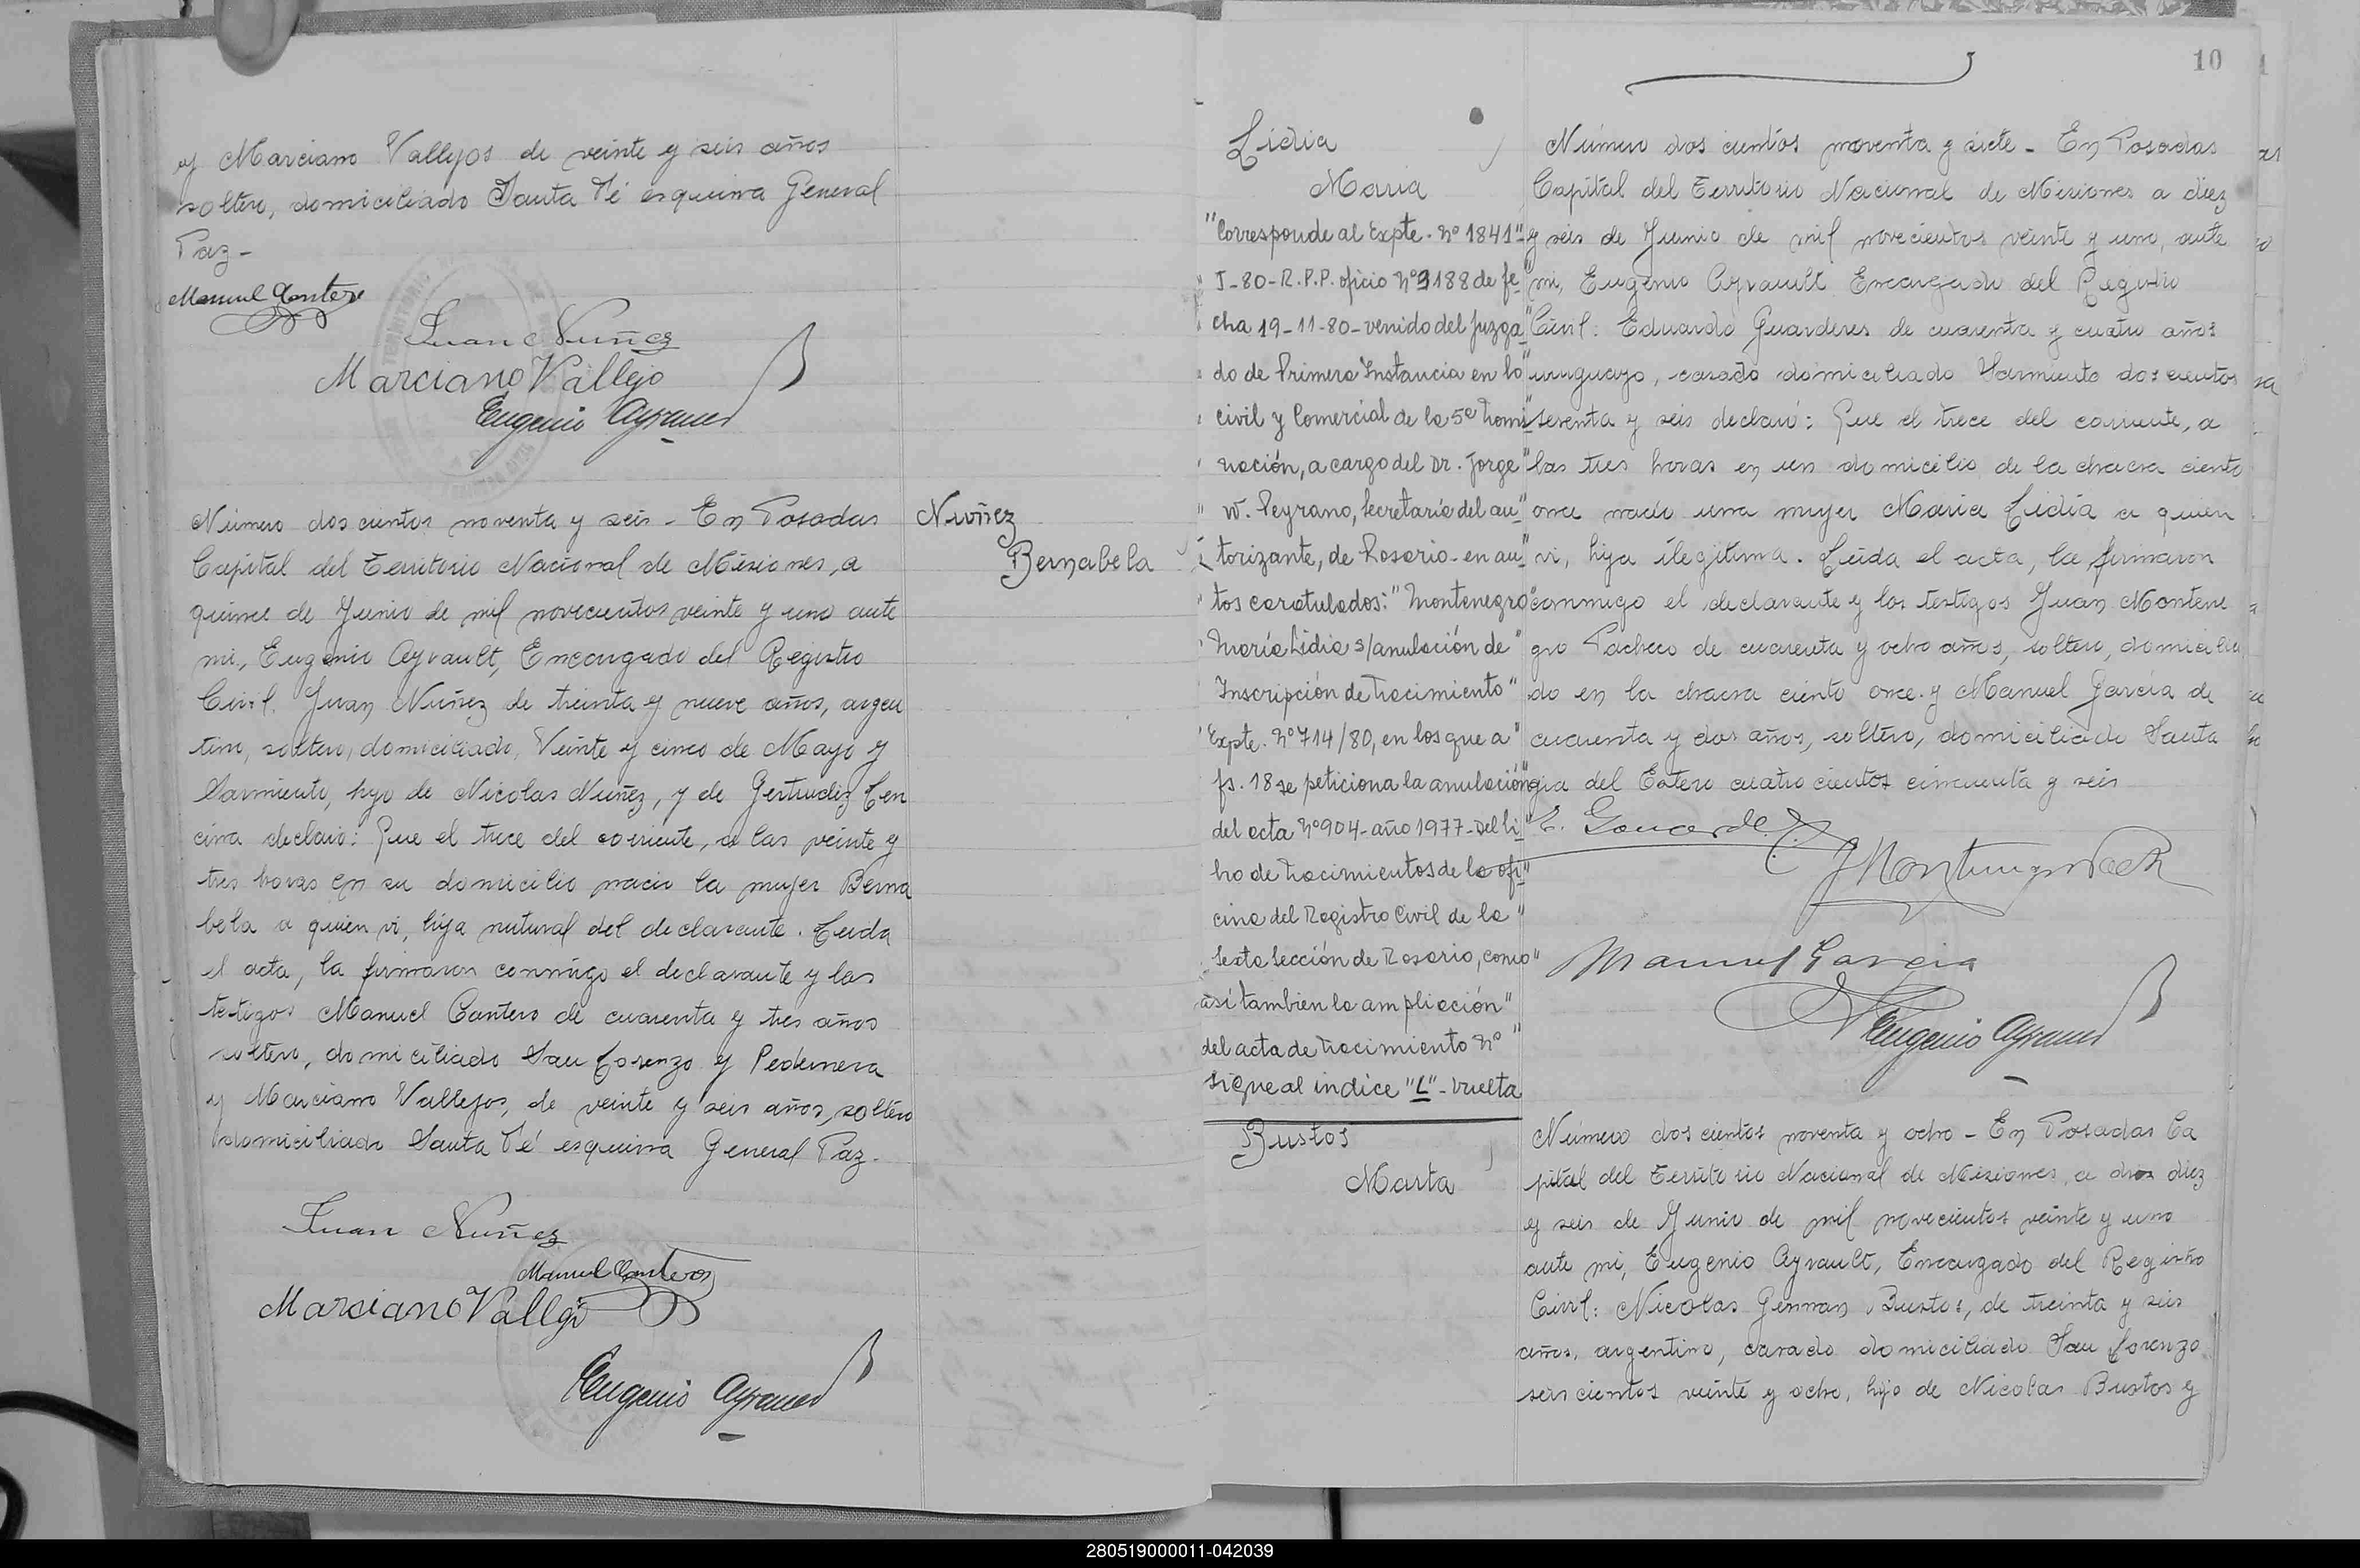 y Marciano Vallejos de veinte y seis años
soltero, domiciliado Santa Fé esquina General
Paz-
Manuel Cantero
Juan Nuñez
Marciano Vallejo
Eugenio Ayrault
Número dos cientos noventa y seis - En Posadas
Capital del Territorio Nacional de Misiones, a
quince de Junio de mil novecientos veinte y uno ante
mi, Eugenio Ayrault, Encargado del Registro
Civil. Juan Nuñez de treinta y nueve años, argen
tino, soltero, domiciliado, Veinte y cinco de Mayo y
Sarmiento, hijo de Nicolas Nuñez, y de Gertrudiz Cen
cina declaró: Que el trece del corriente, a las veinte y
tres horas en su domicilio nació la mujer Berna
bela a quien vi, hija natural del declarante. Leida
el acta, la firmaron conmigo el declarante y los
testigos Manuel Cantero de cuarenta y tres años
soltero, domiciliado San Lorenzo y Pedernera
y Marciano Vallejos, de veinte y seis años, soltero
domiciliado Santa Fé esquina General Paz.
Juan Nuñez
Manuel Cantero
Marciano Vallejo
Eugenio Ayrault
Nuñez
Bernabela
10
Lidia
Maria
"Corresponde al Expte. Nº 1841"
J-80-R.P.P. oficio Nº 3188 de fe-"
cha 19-11-80-venido del Juzga"
do de Primera Instancia en lo"
Civil y Comercial de la 5ª Nomi"
nación, a cargo del Dr. Jorge"
W. Peyrano, Secretaría del au-"
torizante, de Rosario-en au-"
tos caratulados: "Montenegro"
María Lidia s/anulación de"
Inscripción de Nacimiento"
Expte. Nº 714/80, en los que a"
fs. 18 se peticiona la anulación"
del acta Nº 904-año 1977-del li-"
bro de Nacimientos de la ofi-"
cina del Registro Civil de la"
Sexta Sección de Rosario, como"
así tambien la ampliación"
del acta de Nacimiento Nº"
Sigue al indice "L"-Vuelta
Número dos cientos noventa y siete - En Posadas
Capital del Territorio Nacional de Misiones a diez
y seis de Junio de mil novecientos veinte y uno, ante
mi, Eugenio Ayrault Encargado del Registro
Civil: Eduardo Guarderes de cuarenta y cuatro años
uruguayo, casado domiciliado Sarmiento dos cientos
setenta y seis declaró: Que el trece del corriente, a
las tres horas en un domicilio de la chacra ciento
once nació una mujer Maria Lidia a quien
vi, hija ilegitima. Leida el acta, la firmaron
conmigo el declarante y los testigos Juan Montene
gro Pacheco de cuarenta y ocho años, soltero, domicilia
do en la chacra ciento once. y Manuel Garcia de
cuarenta y dos años, soltero, domiciliado Santia
gia del Estero cuatro cientos cincuenta y seis
Manuel Garcia
Eugenio Ayrault
Bustos
Marta
Número dos cientos noventa y ocho - En Posadas Ca
pital del Territorio Nacional de Misiones, a dias diez
y seis de Junio de mil novecientos veinte y uno
ante mi, Eugenio Ayrault, Encargado del Registro
Civil: Nicolas German Bustos, de treinta y seis
años, argentino, casado domiciliado San Lorenzo
seis cientos veinte y ocho, hijo de Nicolas Bustos y
280519000011-042039